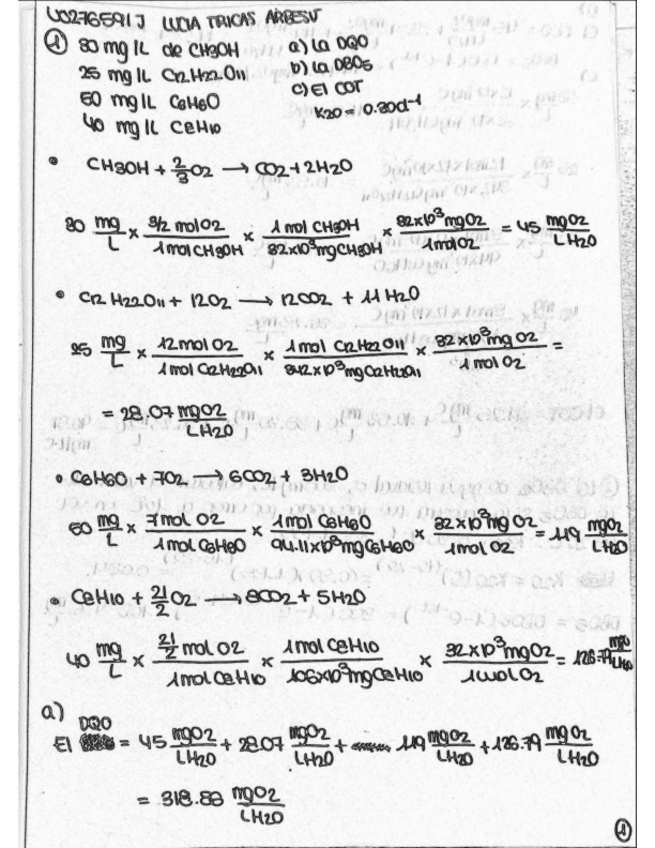 UO276591J LUCIA TRICAS ARBESU
① 30 mg/L de CH3OH a) La DQO
25 mg/L C12H22O11 b) La DBO5
50 mg/L C6H6O c) El COT
40 mg/L C8H10 K20 = 0.30d⁻¹
• CH3OH + 2/3 O2 → CO2 + 2H2O
30 mg/L × 3/2 mol O2/1 mol CH3OH × 1 mol CH3OH/32×10³ mg CH3OH × 32×10³ mg O2/1 mol O2 = 45 mg O2/L H2O
• C12H22O11 + 12O2 → 12CO2 + 11H2O
25 mg/L × 12 mol O2/1 mol C12H22O11 × 1 mol C12H22O11/342×10³ mg C12H22O11 × 32×10³ mg O2/1 mol O2 =
= 28.07 mg O2/L H2O
• C6H6O + 7O2 → 6CO2 + 3H2O
50 mg/L × 7 mol O2/1 mol C6H6O × 1 mol C6H6O/94.11×10³ mg C6H6O × 32×10³ mg O2/1 mol O2 = 119 mg O2/L H2O
• C8H10 + 21/2 O2 → 8CO2 + 5H2O
40 mg/L × 21/2 mol O2/1 mol C8H10 × 1 mol C8H10/106×10³ mg C8H10 × 32×10³ mg O2/1 mol O2 = 126.79 mg O2/L H2O
a) DQO
El = 45 mg O2/L H2O + 28.07 mg O2/L H2O + 119 mg O2/L H2O + 126.79 mg O2/L H2O
= 318.83 mg O2/L H2O
①